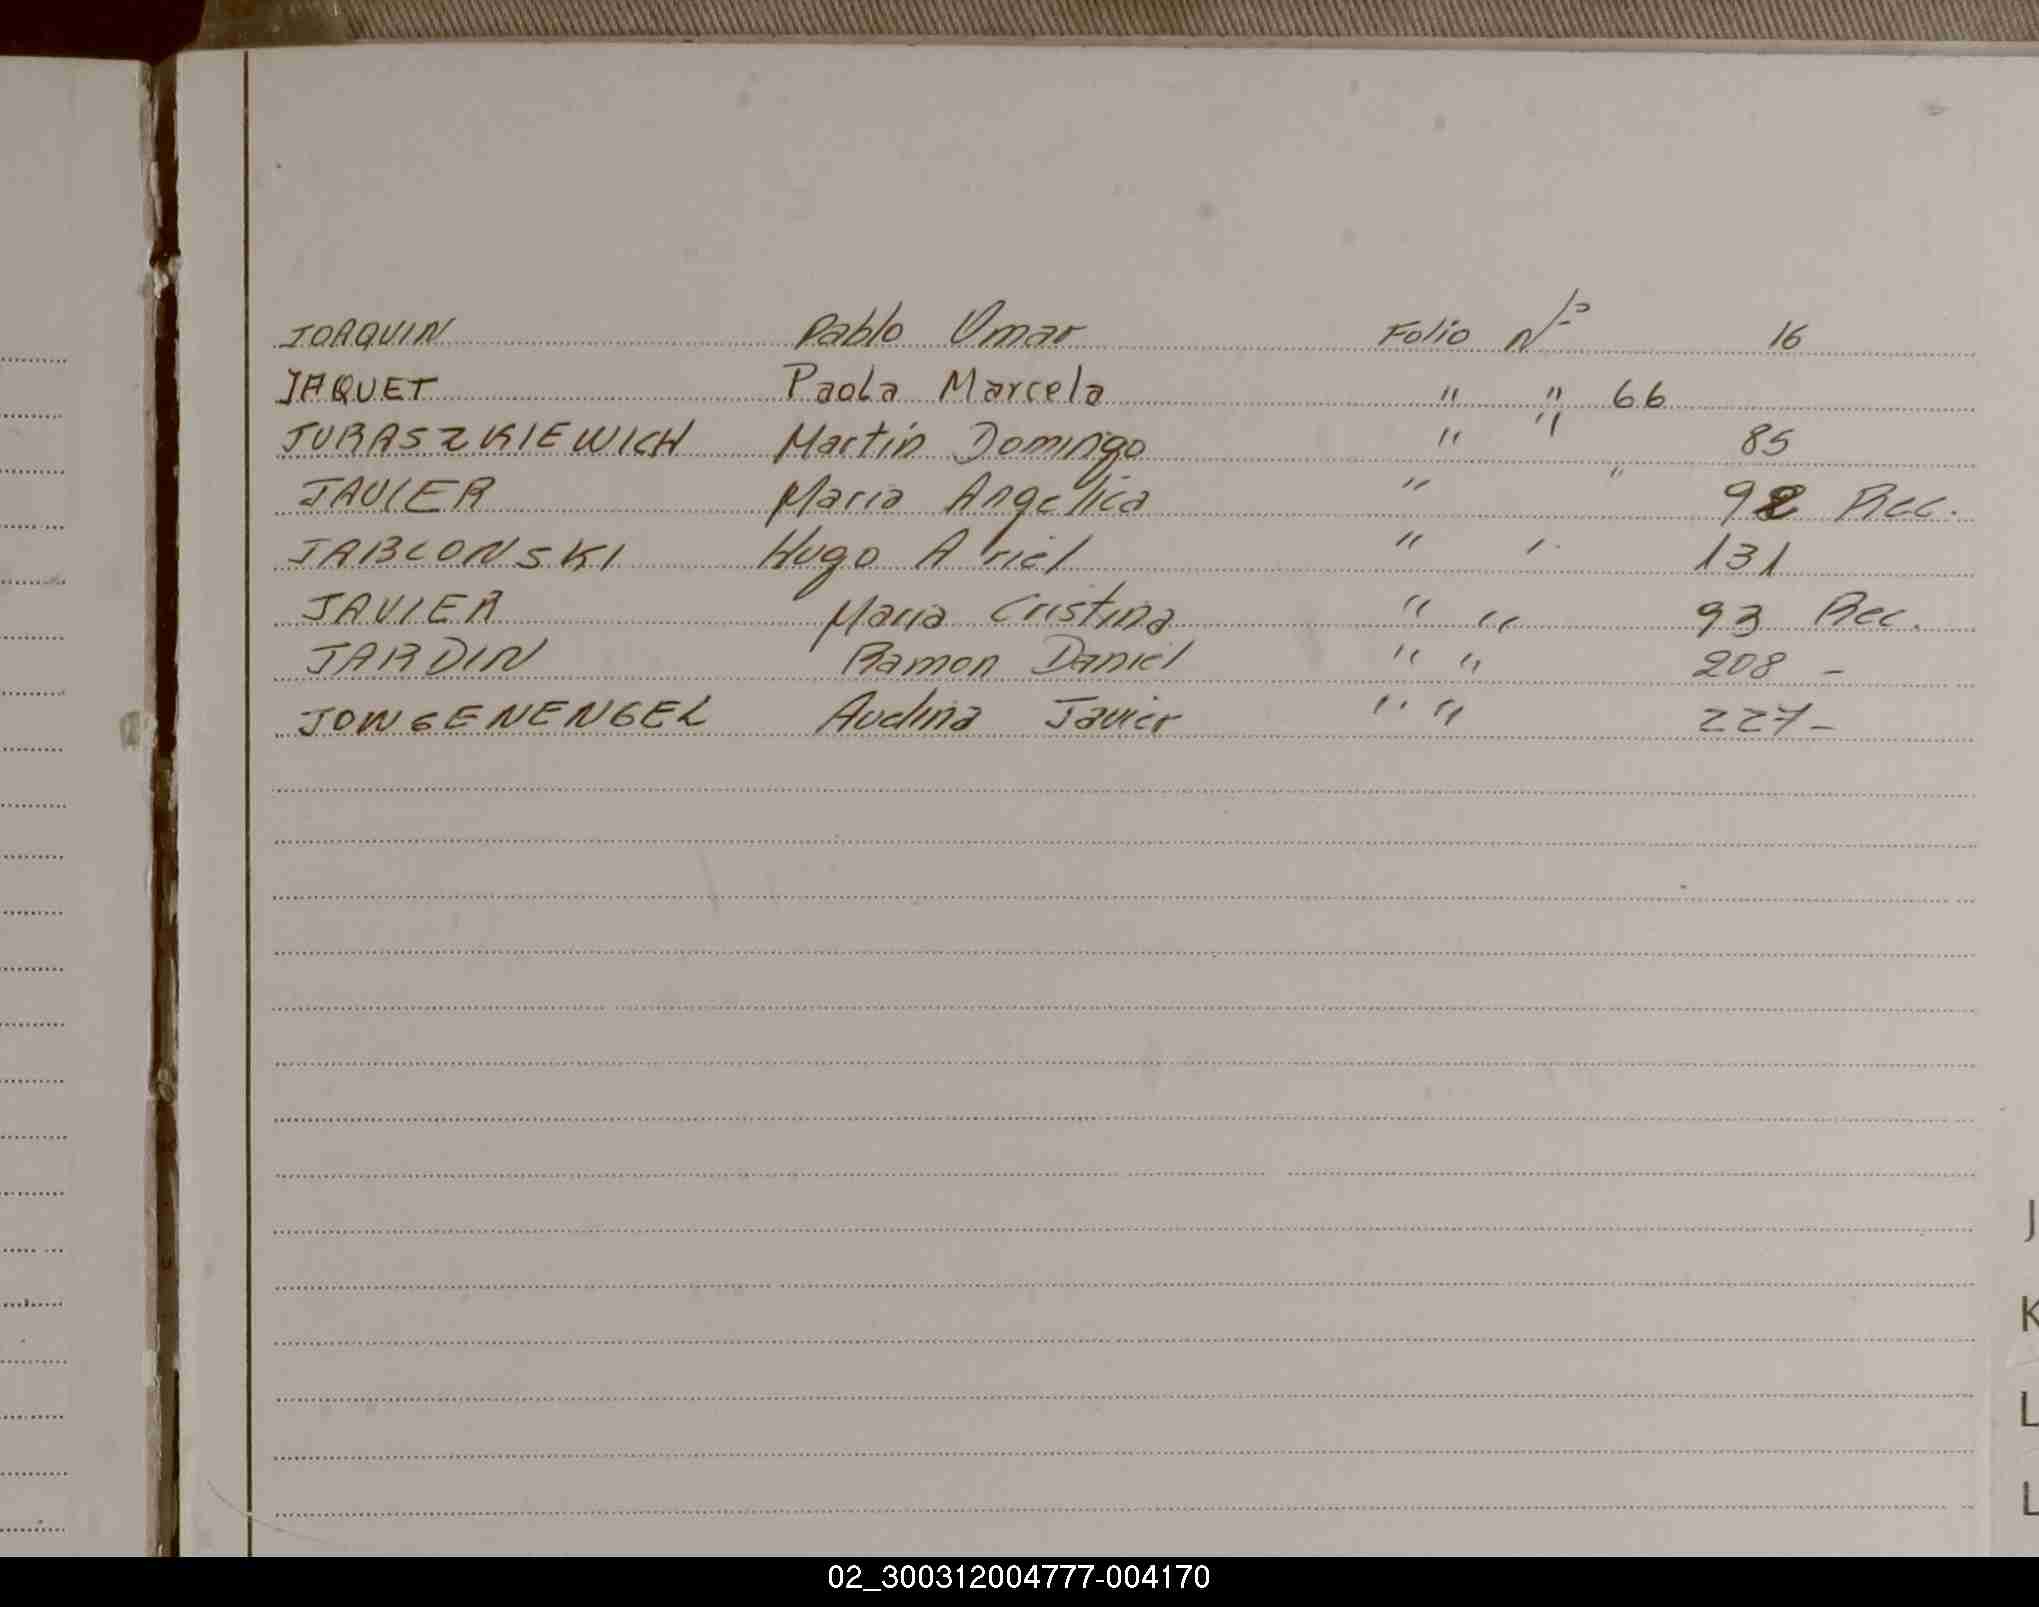 JOAQUIN Pablo Omar Folio Nº 16
JAQUET Paola Marcela " " 66
JURASZKIEWICH Martin Domingo " " 85
JAVIER Maria Angelica " " 92 Rec.
JABLONSKI Hugo Ariel " " 131
JAVIER Maria Cristina " " 93 Rec.
JARDIN Ramon Daniel " " 208 -
JONGENENGEL Avelina Javier " " 227-
J
K
L
L
02_300312004777-004170